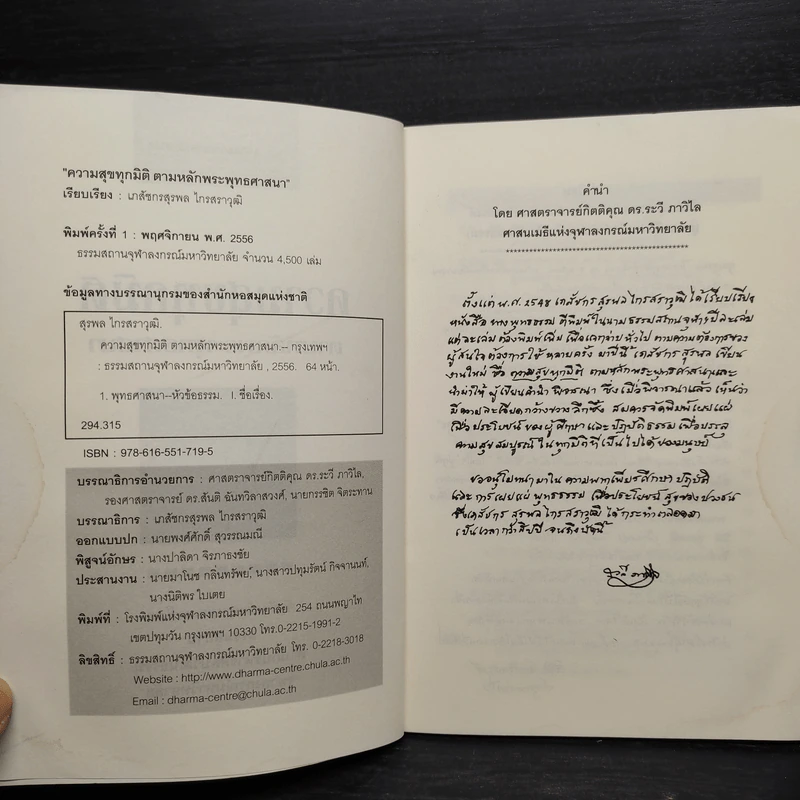 "ความสุขทุกมิติ ตามหลักพระพุทธศาสนา"
เรียบเรียง : เภสัชกรสุรพล ไกรสราวุฒิ
พิมพ์ครั้งที่ 1 : พฤศจิกายน พ.ศ. 2556
ธรรมสถานจุฬาลงกรณ์มหาวิทยาลัย จำนวน 4,500 เล่ม
ข้อมูลทางบรรณานุกรมของสำนักหอสมุดแห่งชาติ
สุรพล ไกรสราวุฒิ.
ความสุขทุกมิติ ตามหลักพระพุทธศาสนา.-- กรุงเทพฯ
: ธรรมสถานจุฬาลงกรณ์มหาวิทยาลัย , 2556. 64 หน้า.
1. พุทธศาสนา--หัวข้อธรรม. I. ชื่อเรื่อง.
294.315
ISBN : 978-616-551-719-5
บรรณาธิการอำนวยการ : ศาสตราจารย์กิตติคุณ ดร.ระวี ภาวิไล,
รองศาสตราจารย์ ดร.สันติ ฉันทวิลาสวงศ์, นายกรรชิต จิตระทาน
บรรณาธิการ : เภสัชกรสุรพล ไกรสราวุฒิ
ออกแบบปก : นายพงศ์ศักดิ์ สุวรรณมณี
พิสูจน์อักษร : นางปาลิดา จิรภาธงชัย
ประสานงาน : นายมาโนช กลิ่นทรัพย์, นางสาวปทุมรัตน์ กิจจานนท์,
นางนิติพร ใบเตย
พิมพ์ที่ : โรงพิมพ์แห่งจุฬาลงกรณ์มหาวิทยาลัย 254 ถนนพญาไท
เขตปทุมวัน กรุงเทพฯ 10330 โทร.0-2215-1991-2
ลิขสิทธิ์ : ธรรมสถานจุฬาลงกรณ์มหาวิทยาลัย โทร. 0-2218-3018
Website : http://www.dharma-centre.chula.ac.th
Email : dharma-centre@chula.ac.th
คำนำ
โดย ศาสตราจารย์กิตติคุณ ดร.ระวี ภาวิไล
ศาสนเมธีแห่งจุฬาลงกรณ์มหาวิทยาลัย
ตั้งแต่ พ.ศ. 2548 เภสัชกร สุรพล ไกรสราวุฒิ ได้เรียบเรียง
หนังสือ ทางพุทธธรรม ตีพิมพ์ในนามธรรมสถานจุฬาฯ ปีละเล่ม
แต่ละเล่ม ต้องพิมพ์เพิ่ม เพื่อแจกจ่ายทั่วไป ตามความต้องการของ
ผู้สนใจ ต้องการใช้ หลายครั้ง มาปีนี้ เภสัชกร สุรพล เขียน
งานใหม่ ชื่อ ความสุขทุกมิติ ตามหลักพระพุทธศาสนาและ
นำมาให้ ผู้เขียนคำนำ พิจารณา ซึ่งเมื่อพิจารณาแล้ว เห็นว่า
มีความละเอียดกว้างขวาง ลึกซึ้ง สมควรจัดพิมพ์เผยแผ่
เพื่อประโยชน์ ของ ผู้ศึกษา และปฏิบัติธรรม เพื่อบรรลุ
ความสุขสมบูรณ์ ในทุกมิติที่เป็นไปได้ของมนุษย์
ขออนุโมทนามาใน ความพากเพียรศึกษา ปฏิบัติ
และการเผยแผ่ พุทธธรรม เพื่อประโยชน์ สุขของปวงชน
ซึ่งเภสัชกร สุรพล ไกรสราวุฒิ ได้กระทำตลอดมา
เป็นเวลากว่าสิบปี จนถึงปัจจุนี้
ระวี ภาวิไล